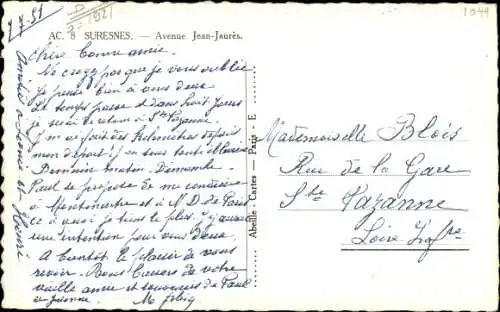 7.7.51
1921
1044
AC. 8 SURESNES. — Avenue Jean-Jaurès.
Chère Commamie.
Ne croyez pas que je vous oublie
Je pense bien à vous deux
Le temps passe et dans huit jours
je serai de retour à Ste Pazanne.
Il n'a fait des depuis
mon départ!
Demain matin Dimanche
Paul se propose de me conduire
à Montmartre et à N D de Paris
ce à quoi je tiens le plus. J'y aurai
une intention pour vous deux.
A bientôt le plaisir de vous
revoir. Bons baisers de votre
vieille amie et souvenirs de Paul
et
M
Amitié à et
Abeille - Cartes - Paris - E
Mademoiselle Blois
Rue de la Gare
Ste Pazanne
Loire Infre